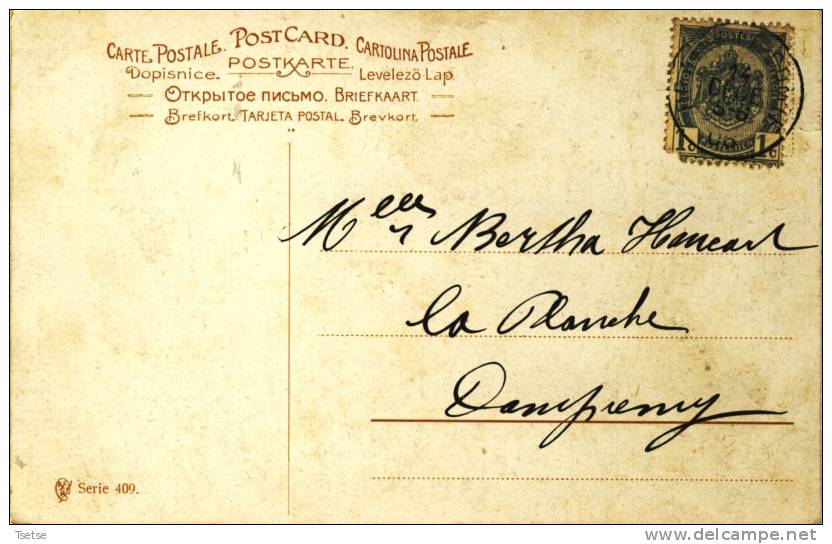 CARTE POSTALE. POSTCARD. CARTOLINA POSTALE.
Dopisnice. POSTKARTE. Levelező-Lap.
Открытое письмо. BRIEFKAART.
Brefkort. TARJETA POSTAL. Brevkort.
POSTES
14
DECE
1c 1c
Melles Bertha Hancart
la Planche
Dampremy
Serie 409.
Tsetse
delcampe.net